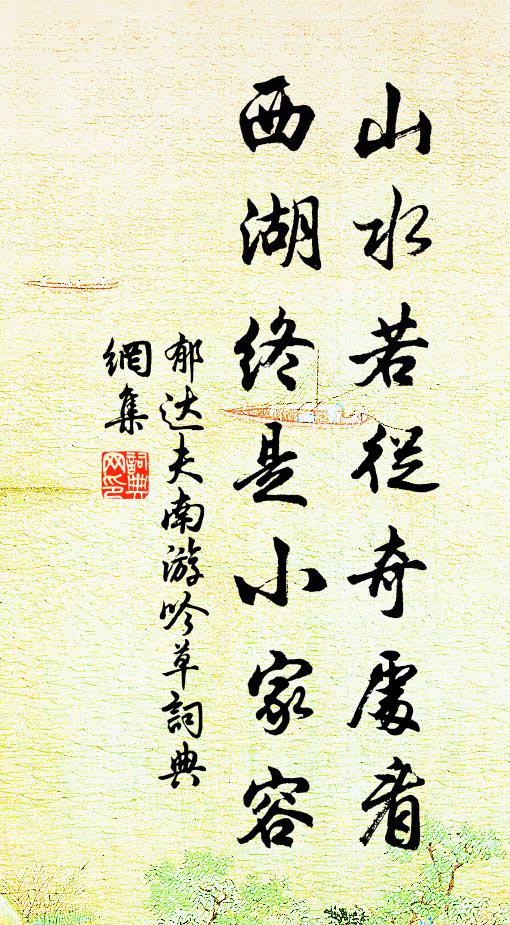 山水若從奇處看
西湖終是小家容
郁达夫南游吟草詞典
網集
詞典
网印